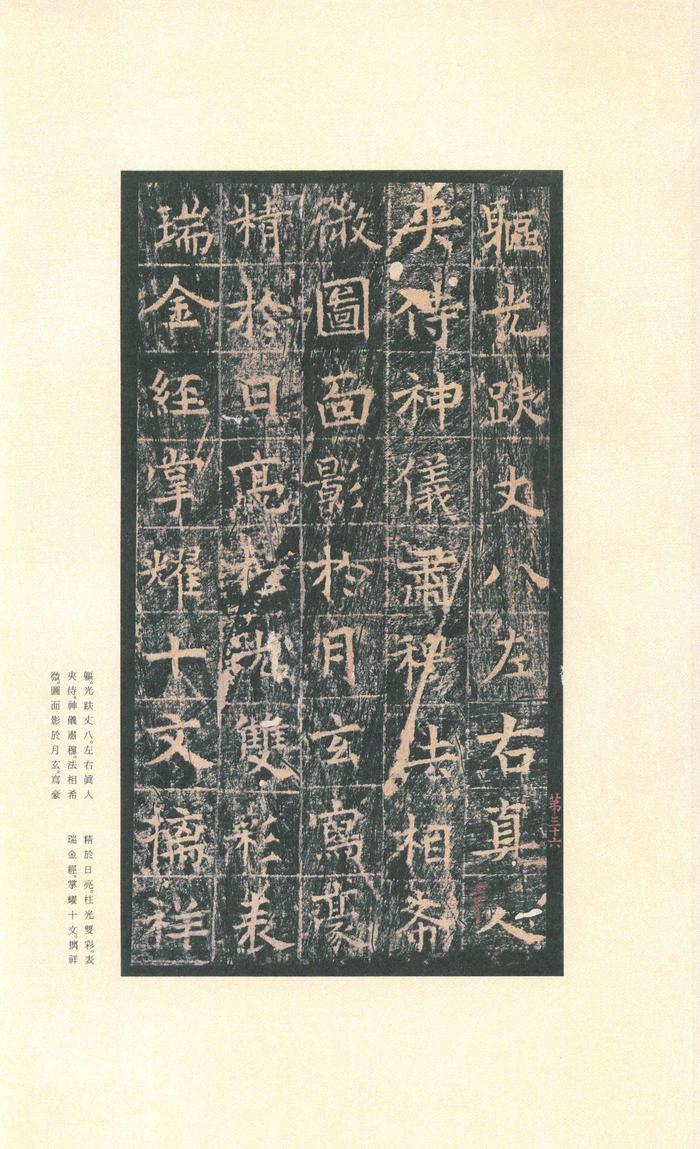 軀光趺丈八左右真人
夾侍神儀肅穆法相希
微圖面影於月玄寫豪
精於日亮柱光雙彩表
瑞金經掌耀十文摛祥
第三十六
軀。光趺丈八。左右眞人
夾侍。神儀肅穆。法相希
微。圖面影於月玄。寫豪
精於日亮。柱光雙彩。表
瑞金經。掌耀十文。摛祥